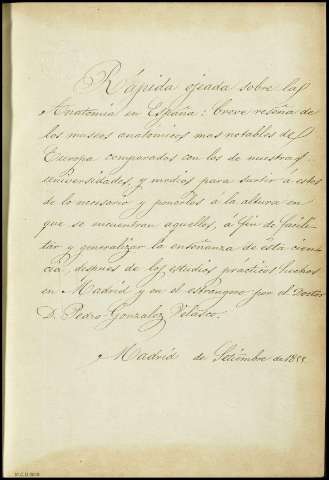 Rápida ojeada sobre la
Anatomia en España: breve reseña de
los museos anatomicos mas notables de
Europa comparados con los de nuestras
universidades, y medios para surtir á estos
de lo necesario y ponerlos á la altura en
que se encuentran aquellos, á fin de facili-
tar y generalizar la enseñanza de ésta cien-
cia, despues de los estudios prácticos hechos
en Madrid y en el estrangero por el Doctor
D. Pedro Gonzalez Velasco.
Madrid de Setiembre de